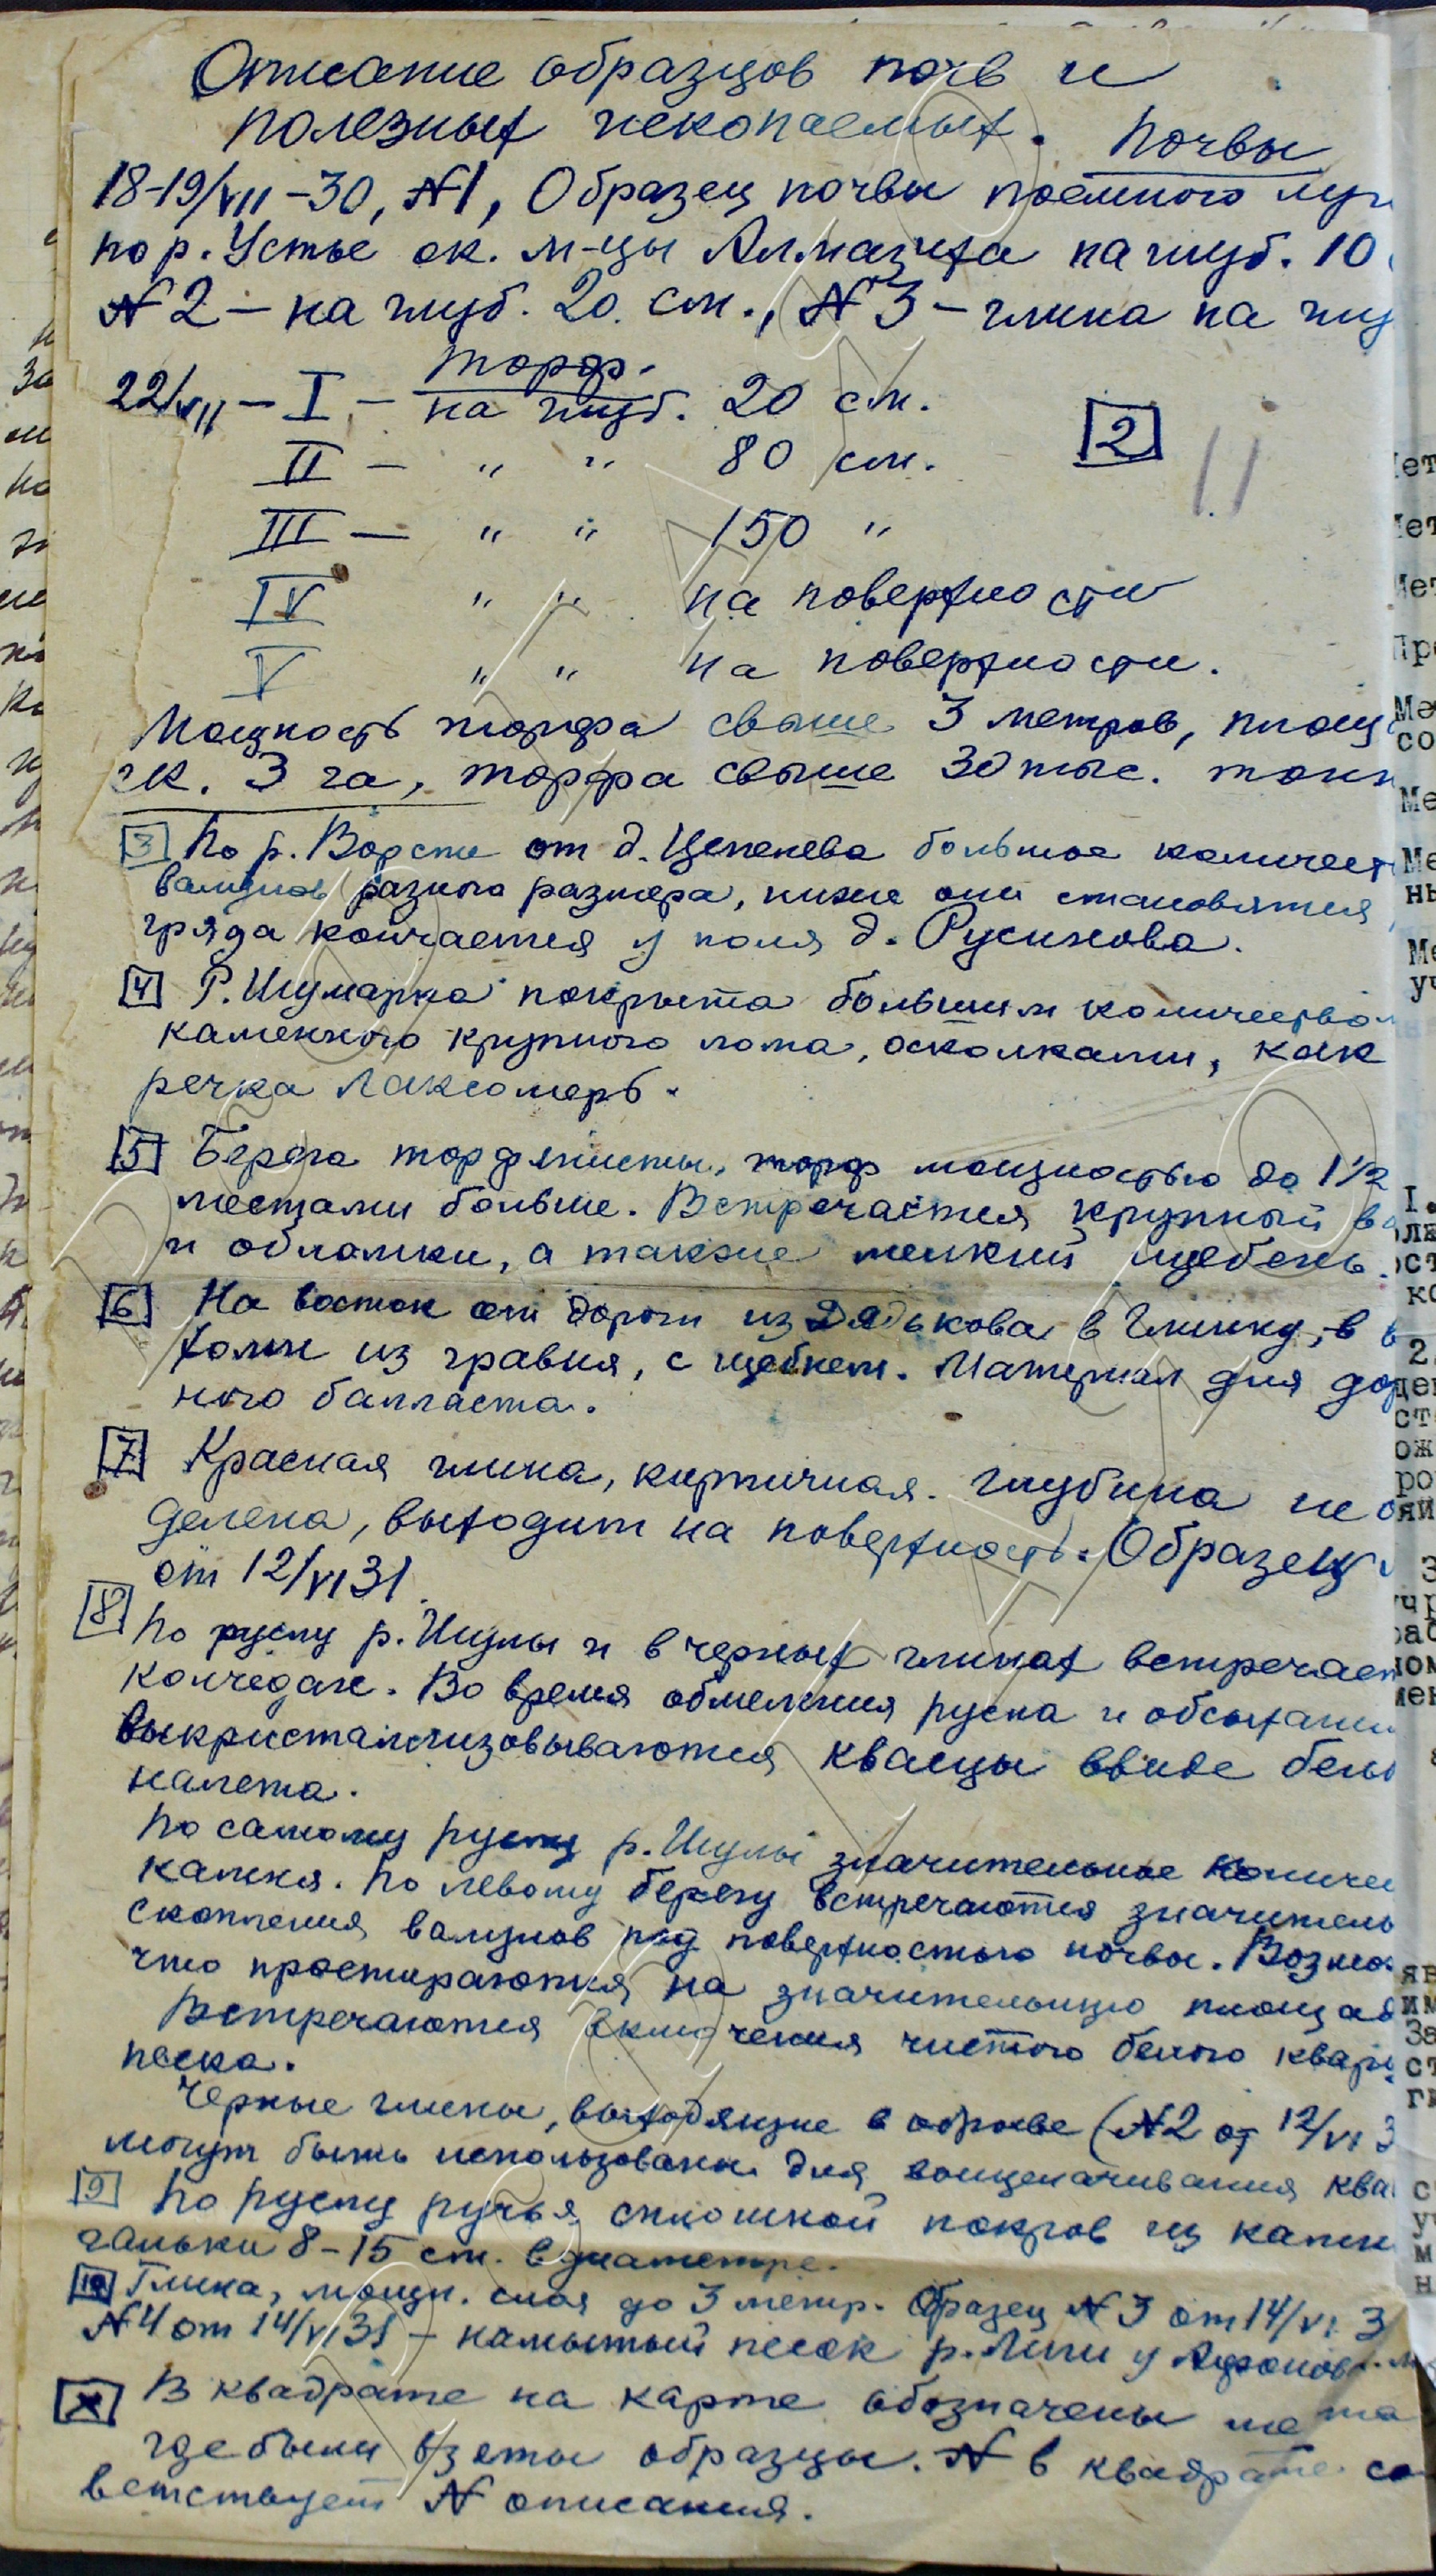 Описание образцов почв и
полезных ископаемых. Почвы
18-19/VII-30, №1, Образец почвы поемного луг
по р. Устье ок. м-цы Алмазиха на глуб. 10
№2 — на глуб. 20. см., №3 — глина на глу
Торф.
22/VII — I — на глуб. 20 см.
II — " " 80 см.
2
11
III — " " 150 "
IV " " на поверхности
V " " на поверхности.
Мощность торфа свыше 3 метров, площ
ок. 3 га, торфа свыше 30 тыс. тонн
3 По р. Ворсте от д. Цепенева большое количест
валунов разного размера, ниже они становятся
гряда кончается у поля д. Русинова.
4 Р. Шумарка покрыта большим количество
каменного крупного лома, осколками, как
речка Лаксомерь.
5 Берега торфянисты, торф мощностью до 1½
местами больше. Встречается крупный ва
и обломки, а также мелкий щебень.
6 На восток от дороги из Дядькова в Глинку, в
холм из гравия, с щебнем. Материал для дор
ного балласта.
7 Красная глина, кирпичная. Глубина не о
делена, выходит на поверхность. Образец
от 12/VI 31.
8 По руслу р. Шулы и в черных глинах встречает
колчедан. Во время обмеления русла и обсыхани
выкристаллизовываются квасцы ввиде бело
налета.
По самому руслу р. Шулы значительное количе
камня. По левому берегу встречаются значитель
скопления валунов под поверхностью почвы. Возмо
что простираются на значительную площад
Встречаются включения чистого белого кварц
песка.
Черные глины, выходящие в обрыве (№2 от 12/VI 3
могут быть использованы для выщелачивания ква
9 По руслу ручья сплошной покров из камн
гальки 8-15 см. в диаметре.
10 Глина, мощн. слоя до 3 метр. Образец №3 от 14/VI 3
№4 от 14/VI 31 — намытый песок р. Лиги у
В квадрате на карте обозначены места
где были взяты образцы. № в квадрате со
ветствует № описания.